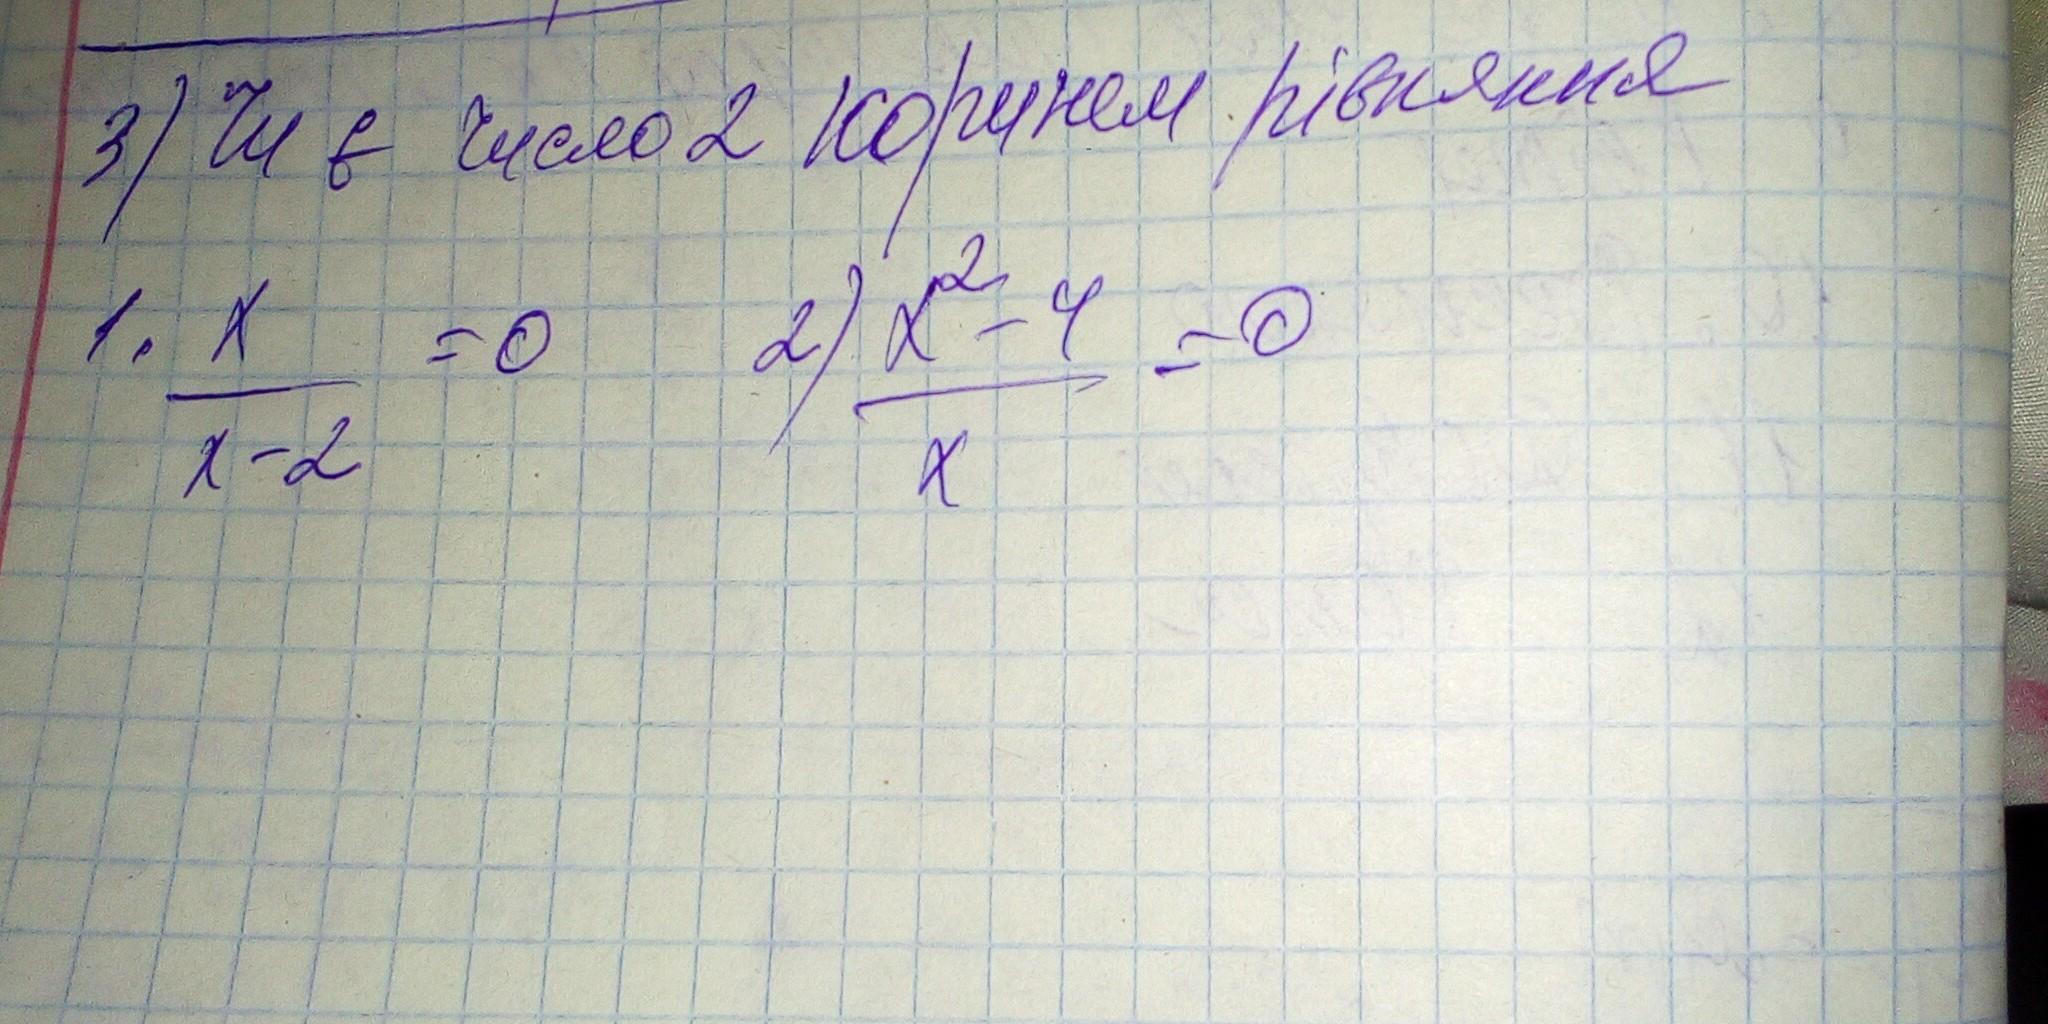 3) Чи є число 2 коринем рівняння
1. x/(x-2) =0 2) (x²-4)/x =0